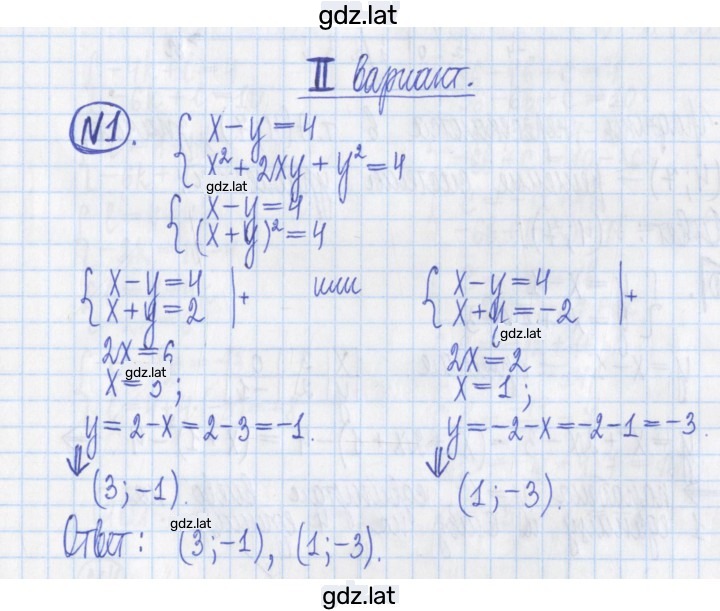 gdz.lat
II вариант.
N1. { x - y = 4
x² + 2xy + y² = 4
gdz.lat
{ x - y = 4
(x + y)² = 4
{ x - y = 4 | + или { x - y = 4 | +
x + y = 2 x + y = -2
gdz.lat
2x = 6 2x = 2
gdz.lat
x = 3; x = 1;
y = 2 - x = 2 - 3 = -1. y = -2 - x = -2 - 1 = -3.
⇓ ⇓
(3; -1). (1; -3).
gdz.lat
Ответ: (3; -1), (1; -3).
gdz.lat